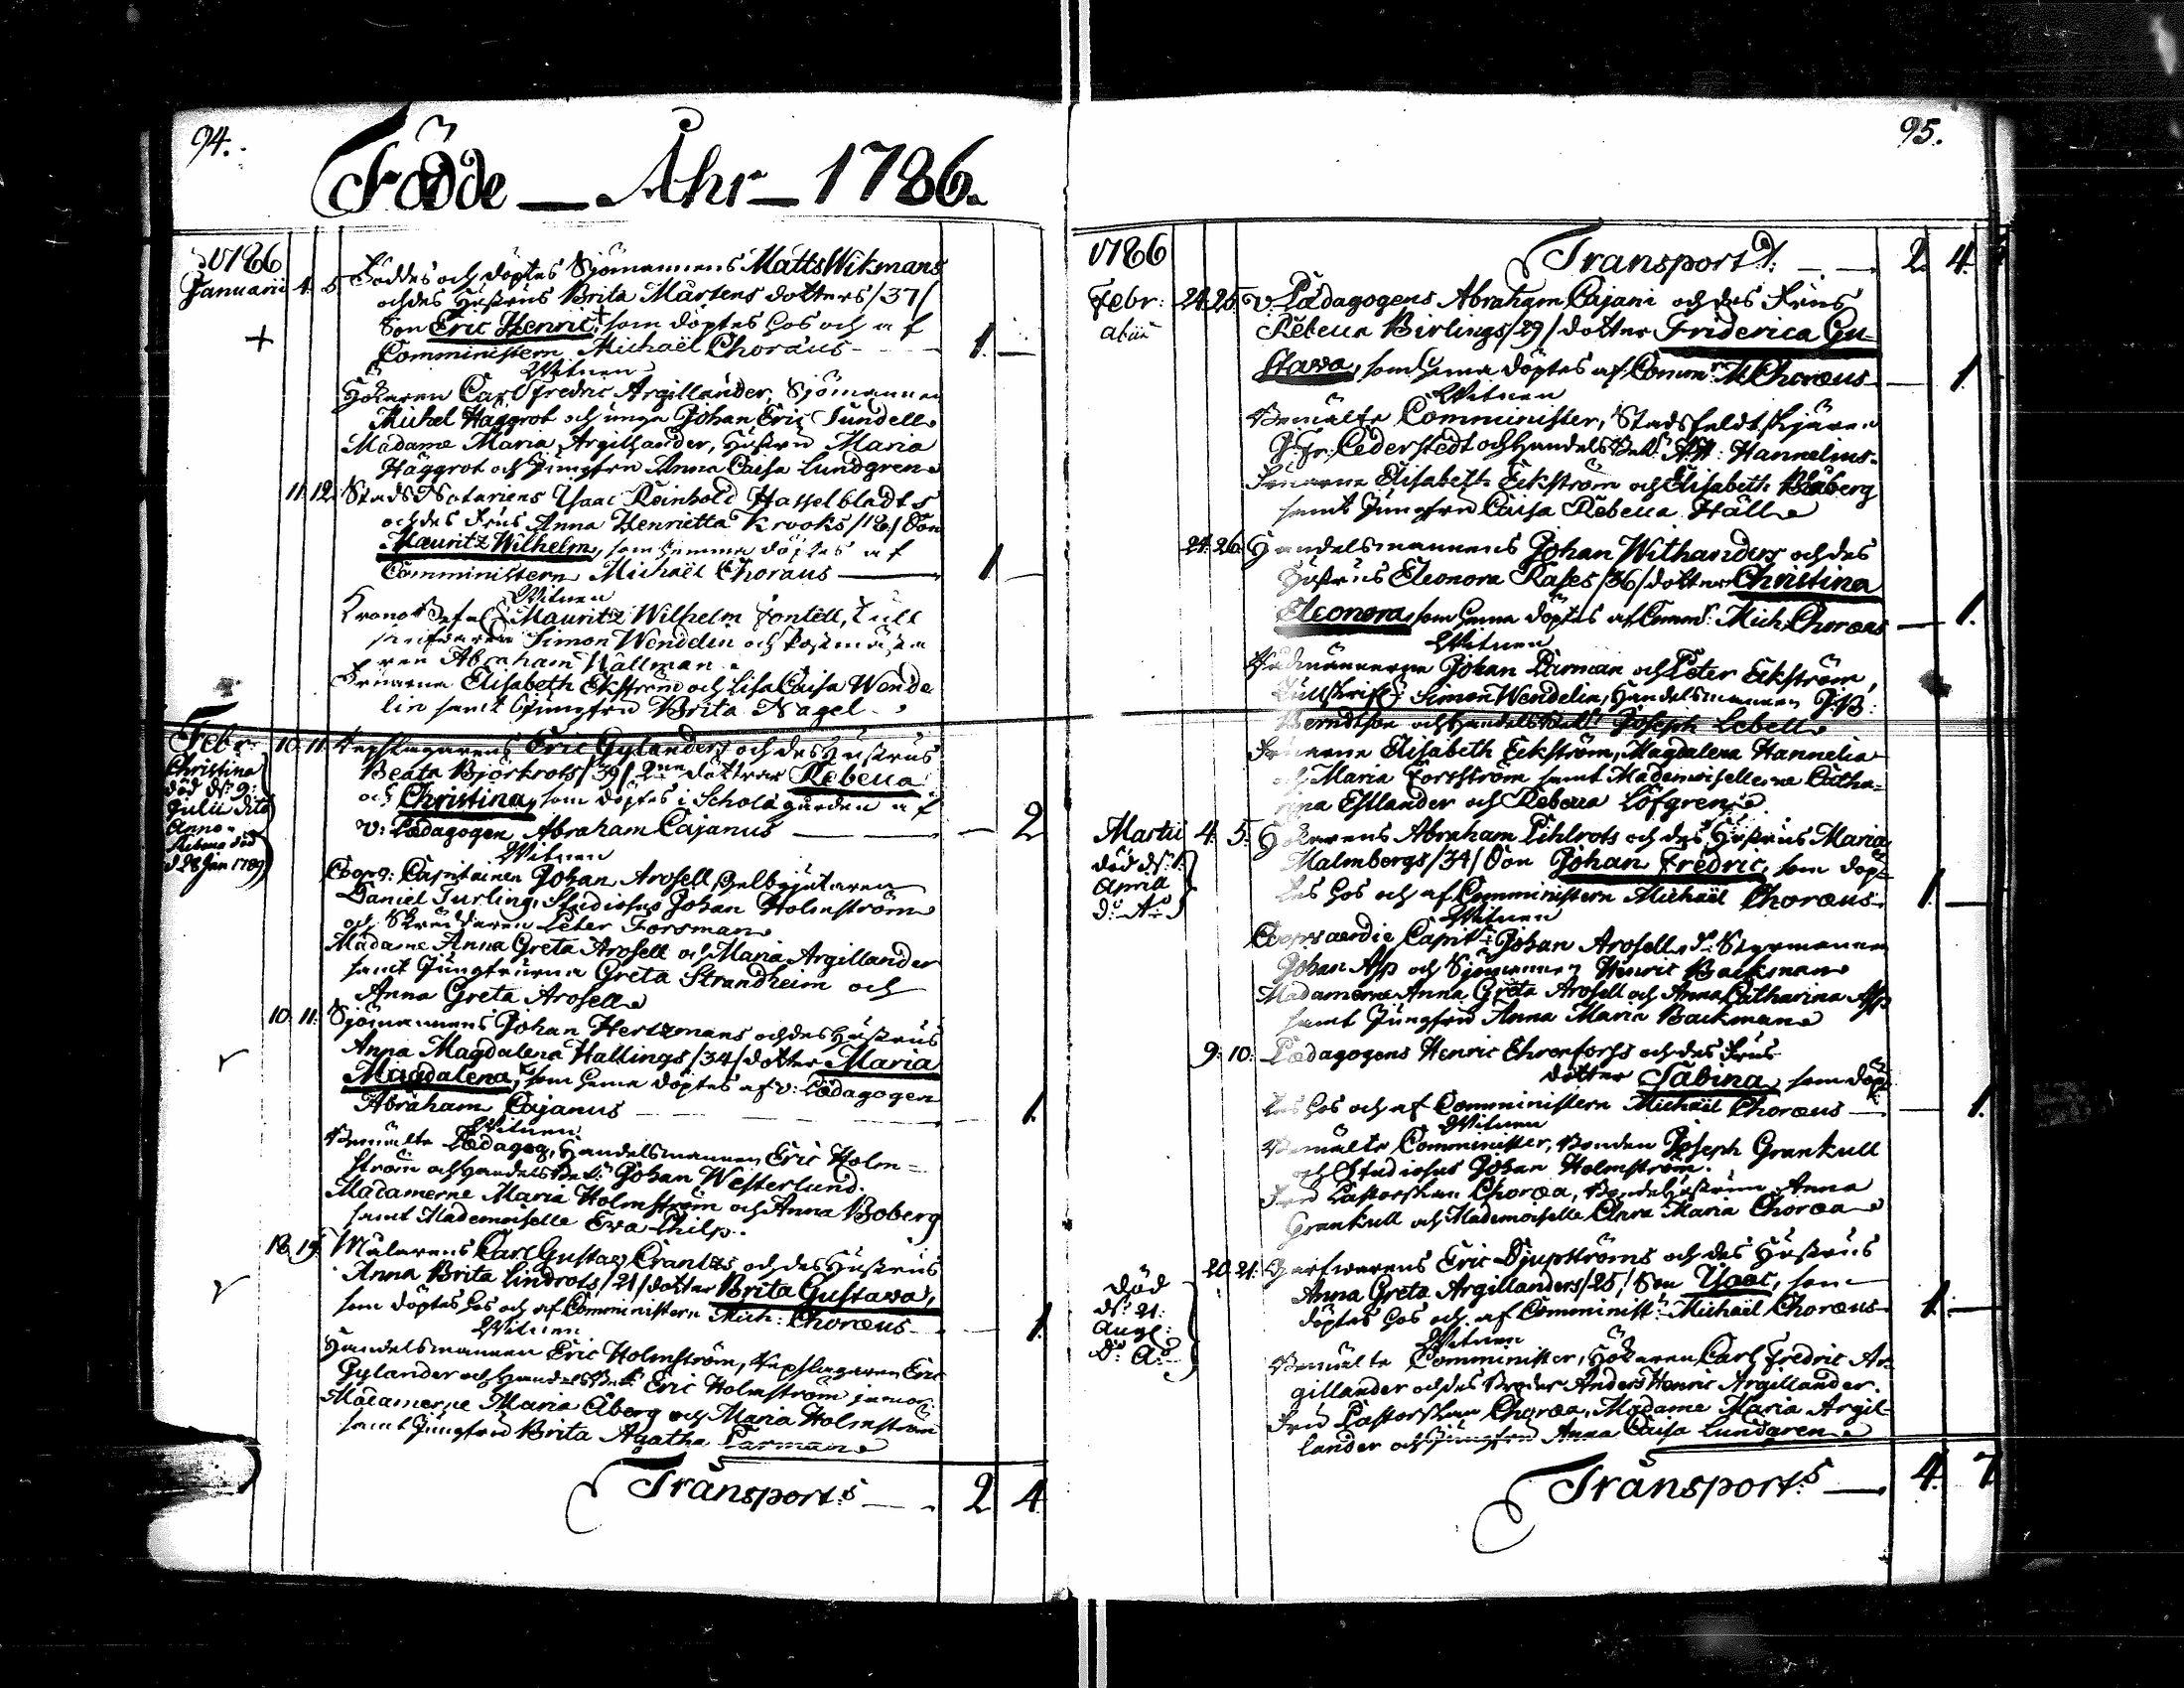 94.
Födde — Åhr — 1786.
1786
Januarii 4. 5. Föddes och döptes Sjömannens Matts Wikmans
och des Hustrus Brita Mårtens dotters /37/
Son Eric Henric, som döptes hos och af
+
Comministern Michaël Choræus — 1. —
Witnen
Hökaren Carl Fredric Argillander, Sjömannen
Michel Häggrot och unge Johan Eric Sundell
Madame Maria Argillander, Hustru Maria
Häggrot och Jungfru Anna Caisa Lundgren
11. 12. Stads Notariens Isaac Reinhold Hasselbladts
och des Frus Anna Henrietta Krooks Son
Mauritz Wilhelm, som hemma döptes af
Comministern Michaël Choræus — 1 —
Witnen
Mauritz Wilhelm Fontell, Tull
Simon Wendelin och
ren Abraham Wallman
Fruarna Elisabeth Ekström och Lisa Caisa Wende
lin samt Jungfru Brita Nagel
Febr. 10. 11. Repslagarens Eric Gylanders och des Hustrus
Beata Björkrots /39/ 2ne döttrar Rebecca
och Christina, som döptes i Scholægården af
v: Pædagogen Abraham Cajanus — 2
Christina
död d: 9:
Julii dito
Anno.
Rebecca död
d 28 Jan 1789
Witnen
Capitainen Johan Arosell, Gelbgjutaren
Daniel Turling, Studiosus Johan Holmström
och Skräddaren Peter Forsman
Madame Anna Greta Arosell och Maria Argillander
samt Jungfruerna Greta Strandheim och
Anna Greta Arosell
10. 11. Sjömannens Johan Hertzmans och des Hustrus
Anna Magdalena Hallings /34/ dotter Maria
Magdalena, som hema döptes af v: Pædagogen
Abraham Cajanus — 1.
Witnen
Bemälte Pædagog, Handelsmannen Eric Holm=
ström och Handels Bet: Johan Westerlund.
Madamerne Maria Holmström och Anna Boberg
samt Mademoiselle Eva Philp.
18. 19. Målarens Carl Gustav Crantzs och des Hustrus
Anna Brita Lindrots /21/ dotter Brita Gustava,
som döptes hos och af Comministern Mich: Choræus — 1.
Witnen
Handelsmannen Eric Holmström, Repslagaren Eric
Gylander och Handels Bet: Eric Holmström junior
Madamerne Maria Åberg och Maria Holmström
samt Jungfru Brita Agatha Parman
Transport: s — 2 4.
95.
1786 Transport: — 2. 4.
Febr: 24. 25. v: Pædagogens Abraham Cajani och des Frus
Rebecca Birlings /29/ dotter Friderica Gu=
stava, som hema döptes af Comm: M Choræus — 1.
Witnen
Bemälte Comminister, Stads Feldtskjären
J. Fr: Cederstedt och Handels Bet: A. H: Hannelius.
Fruarne Elisabeth Eckström och Elisabeth
samt Jungfru Caisa Rebecca Häll
24. 26. Handelsmannens Johan Withanders och des
Hustrus Eleonora Rases /36/ dotter Christina
Eleonora, som hema döptes af Comm: Mich. Choræus — 1.
Witnen
Rådmännerne Johan Parman och Peter Eckström,
Simon Wendelin, Handelsmannen
Berndtson och Handels Bet: Joseph Lebell
Fruarne Elisabeth Eckström, Magdalena Hannelia
och Maria Forsström samt Mademoisellerne Catha=
rina Estlander och Rebecca Löfgren
Martii 4. 5. Hökarens Abraham Pihlrots och des Hustrus Maria
Malmbergs /34/ Son Johan Fredric, som döp=
tes hos och af Comministern Michaël Choræus. 1. —
död d: 1.
Aprill
d: A:
Witnen
Capit: Johan Arosell, Styrmannen
Johan Asp och Sjömannen Henric Backman
Madamerne Anna Greta Arosell och Anna Catharina Asp
samt Jungfru Anna Maria Backman
9. 10. Pædagogens Henric Ehrenforss och des Frus
dotter Sabina, som döp=
tes hos och af Comministern Michaël Choræus — 1.
Witnen
Bemälte Comminister, Bonden Joseph Grankull
och Studiosus Johan Holmström.
Fru Pastorskan Choræa, Bonde Hustrun Anna
Grankull och Mademoiselle Anna Maria Choræa
20. 21. Garfwarens Eric Djupströms och des Hustrus
Anna Greta Argillanders /25/ Son Isaac, som
döptes hos och af Comminist: Michaël Choræus 1. —
Död
d: 21:
Aug:
d: A:
Witnen
Bemälte Comminister, Hökaren Carl Fredric Ar=
gillander och des Broder Anders Henric Argillander.
Fru Pastorskan Choræa, Madame Maria Argil=
lander och Jungfru Anna Caisa Lundgren
Transport: s — 4. 7